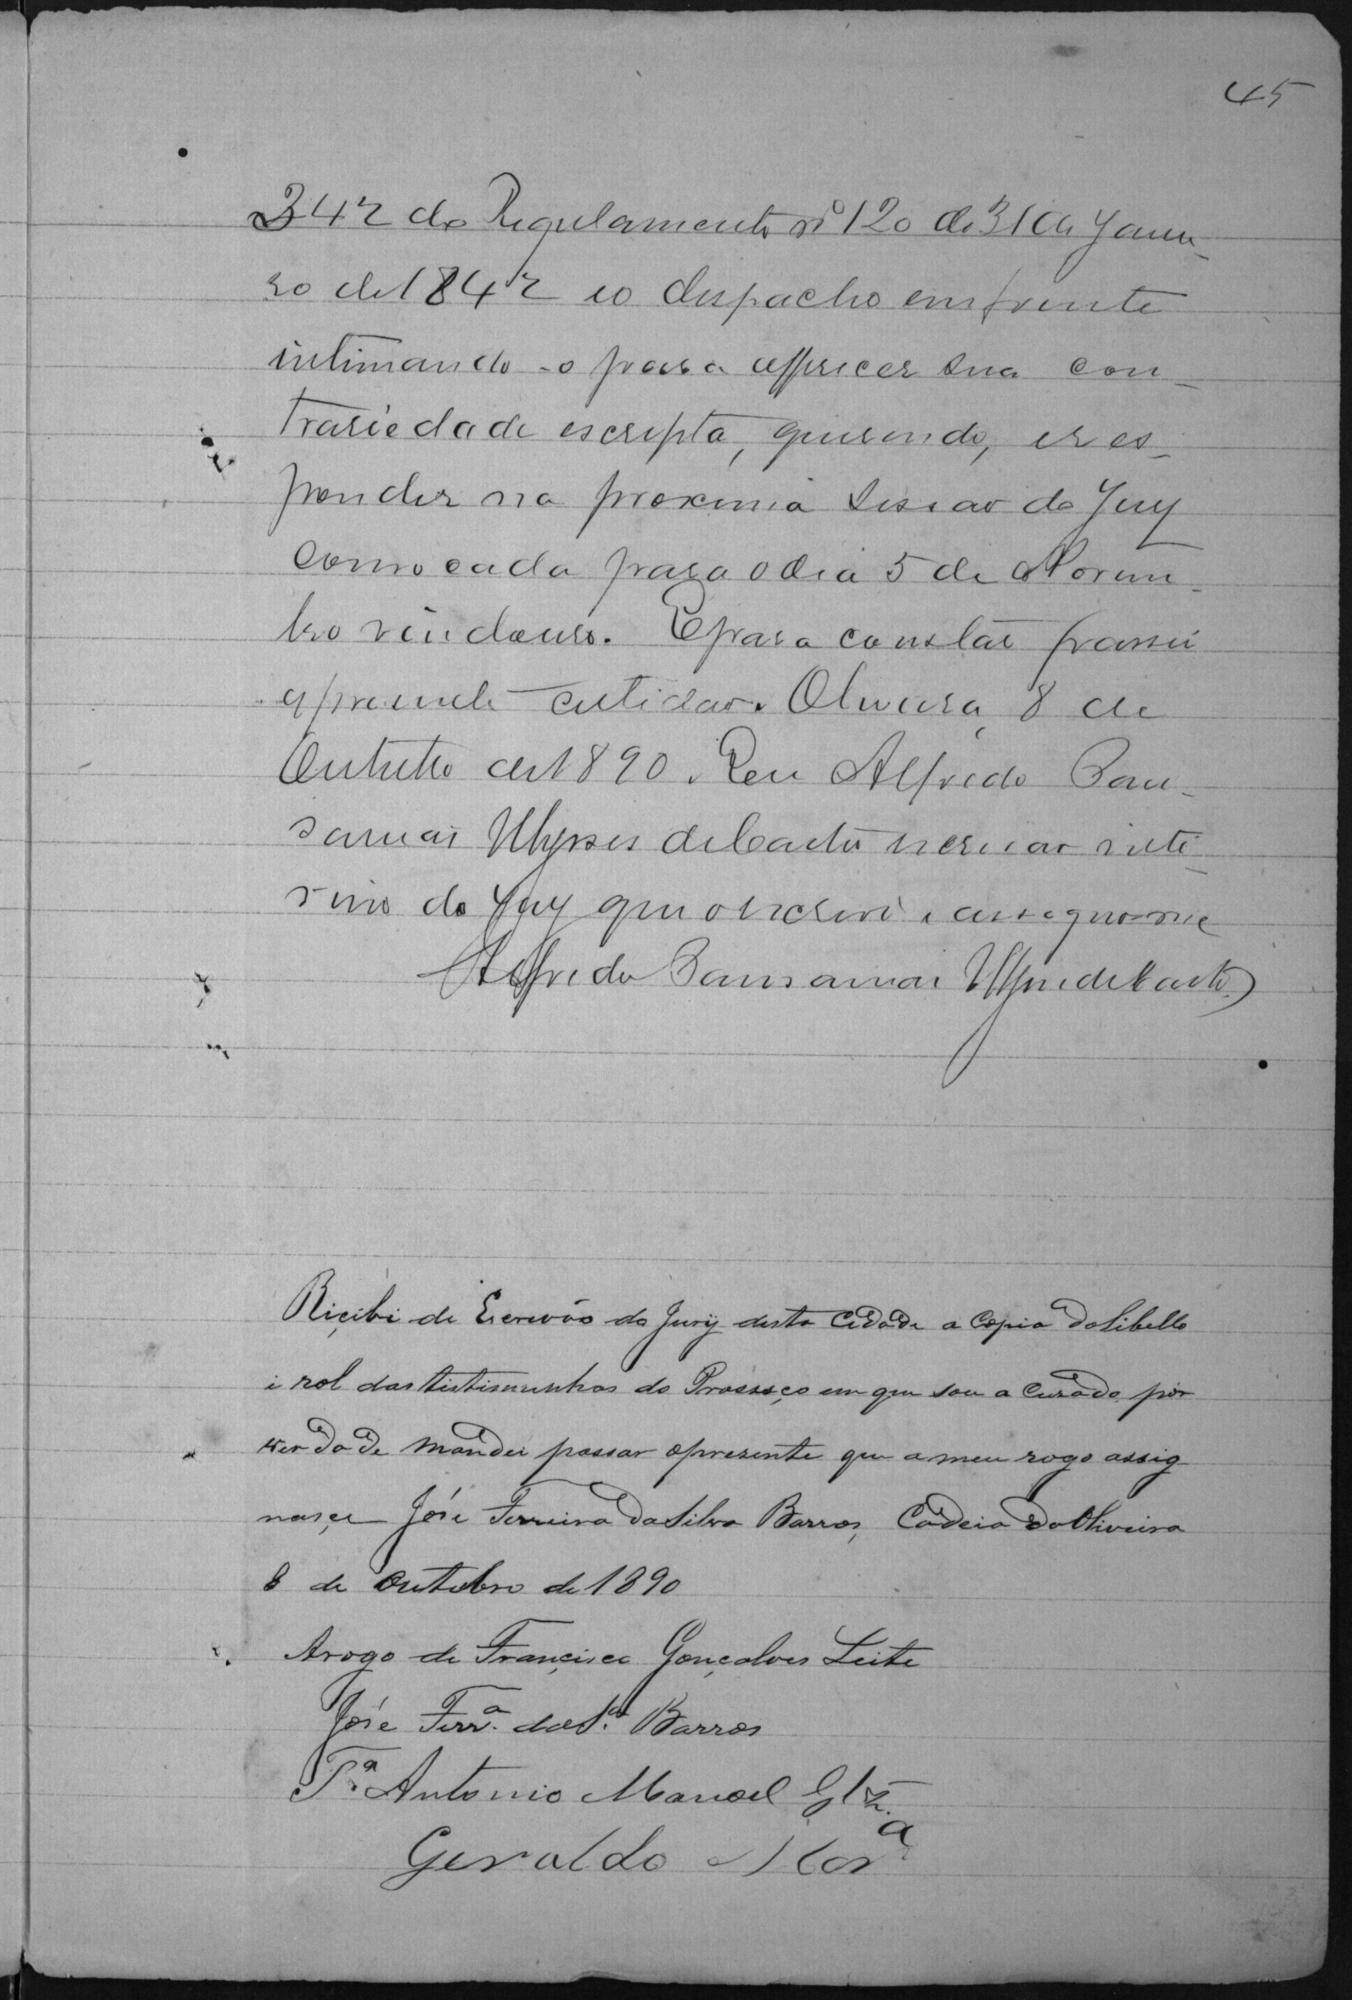 45
342 do Regulamento nº 120 de 31 de Janei-
ro de 1842 e o despacho em frente
intimando-o para offerecer sua con-
trariedade escripta, querendo, e res-
ponder na proxima sessão do Jury
convocada para o dia 5 de Novem-
bro vindouro. E para constar passei
a presente certidão. Oliveira, 8 de
Outubro de 1890. Eu Alfredo
Ulysses de Castro escrivão inte-
rino do Jury que o escrevi e assigno-me
Alfredo Ulysses de Castro
Riçibi de Escrivão do Jury desta Cidade a Copia do Libello
i rol das tistimunhas do Prosseço em que sou a Cusado, por
verdade mandei passar apresente que a meu rogo assig
nasçe Jóse Ferreira da Silva Barros, Cadeia da Oliveira
8 de Outubro de 1890
Arogo de Françisco Gonçalves Leite
Jóse Ferrª. da Sª Barros
Tª. Antonio Manoel
Geraldo